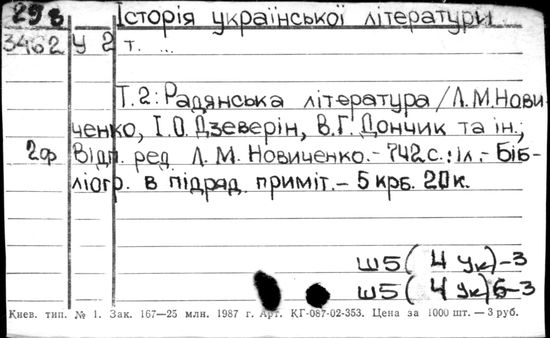 29в Історія української літератури
3462 У 2 т. ...
Т.2: Радянська література / Л.М.Нови-
ченко, І.О.Дзеверін, В.Г.Дончик та ін.;
2ф Відп. ред. Л.М.Новиченко.- 742с.:іл.- Біб-
ліогр. в підряд. приміт.- 5 крб. 20к.
Ш5( 4 Ук)-3
Ш5( 4 Ук)6-3
Киев. тип. № 1. Зак. 167—25 млн. 1987 г. Арт. КГ-087-02-353. Цена за 1000 шт. — 3 руб.